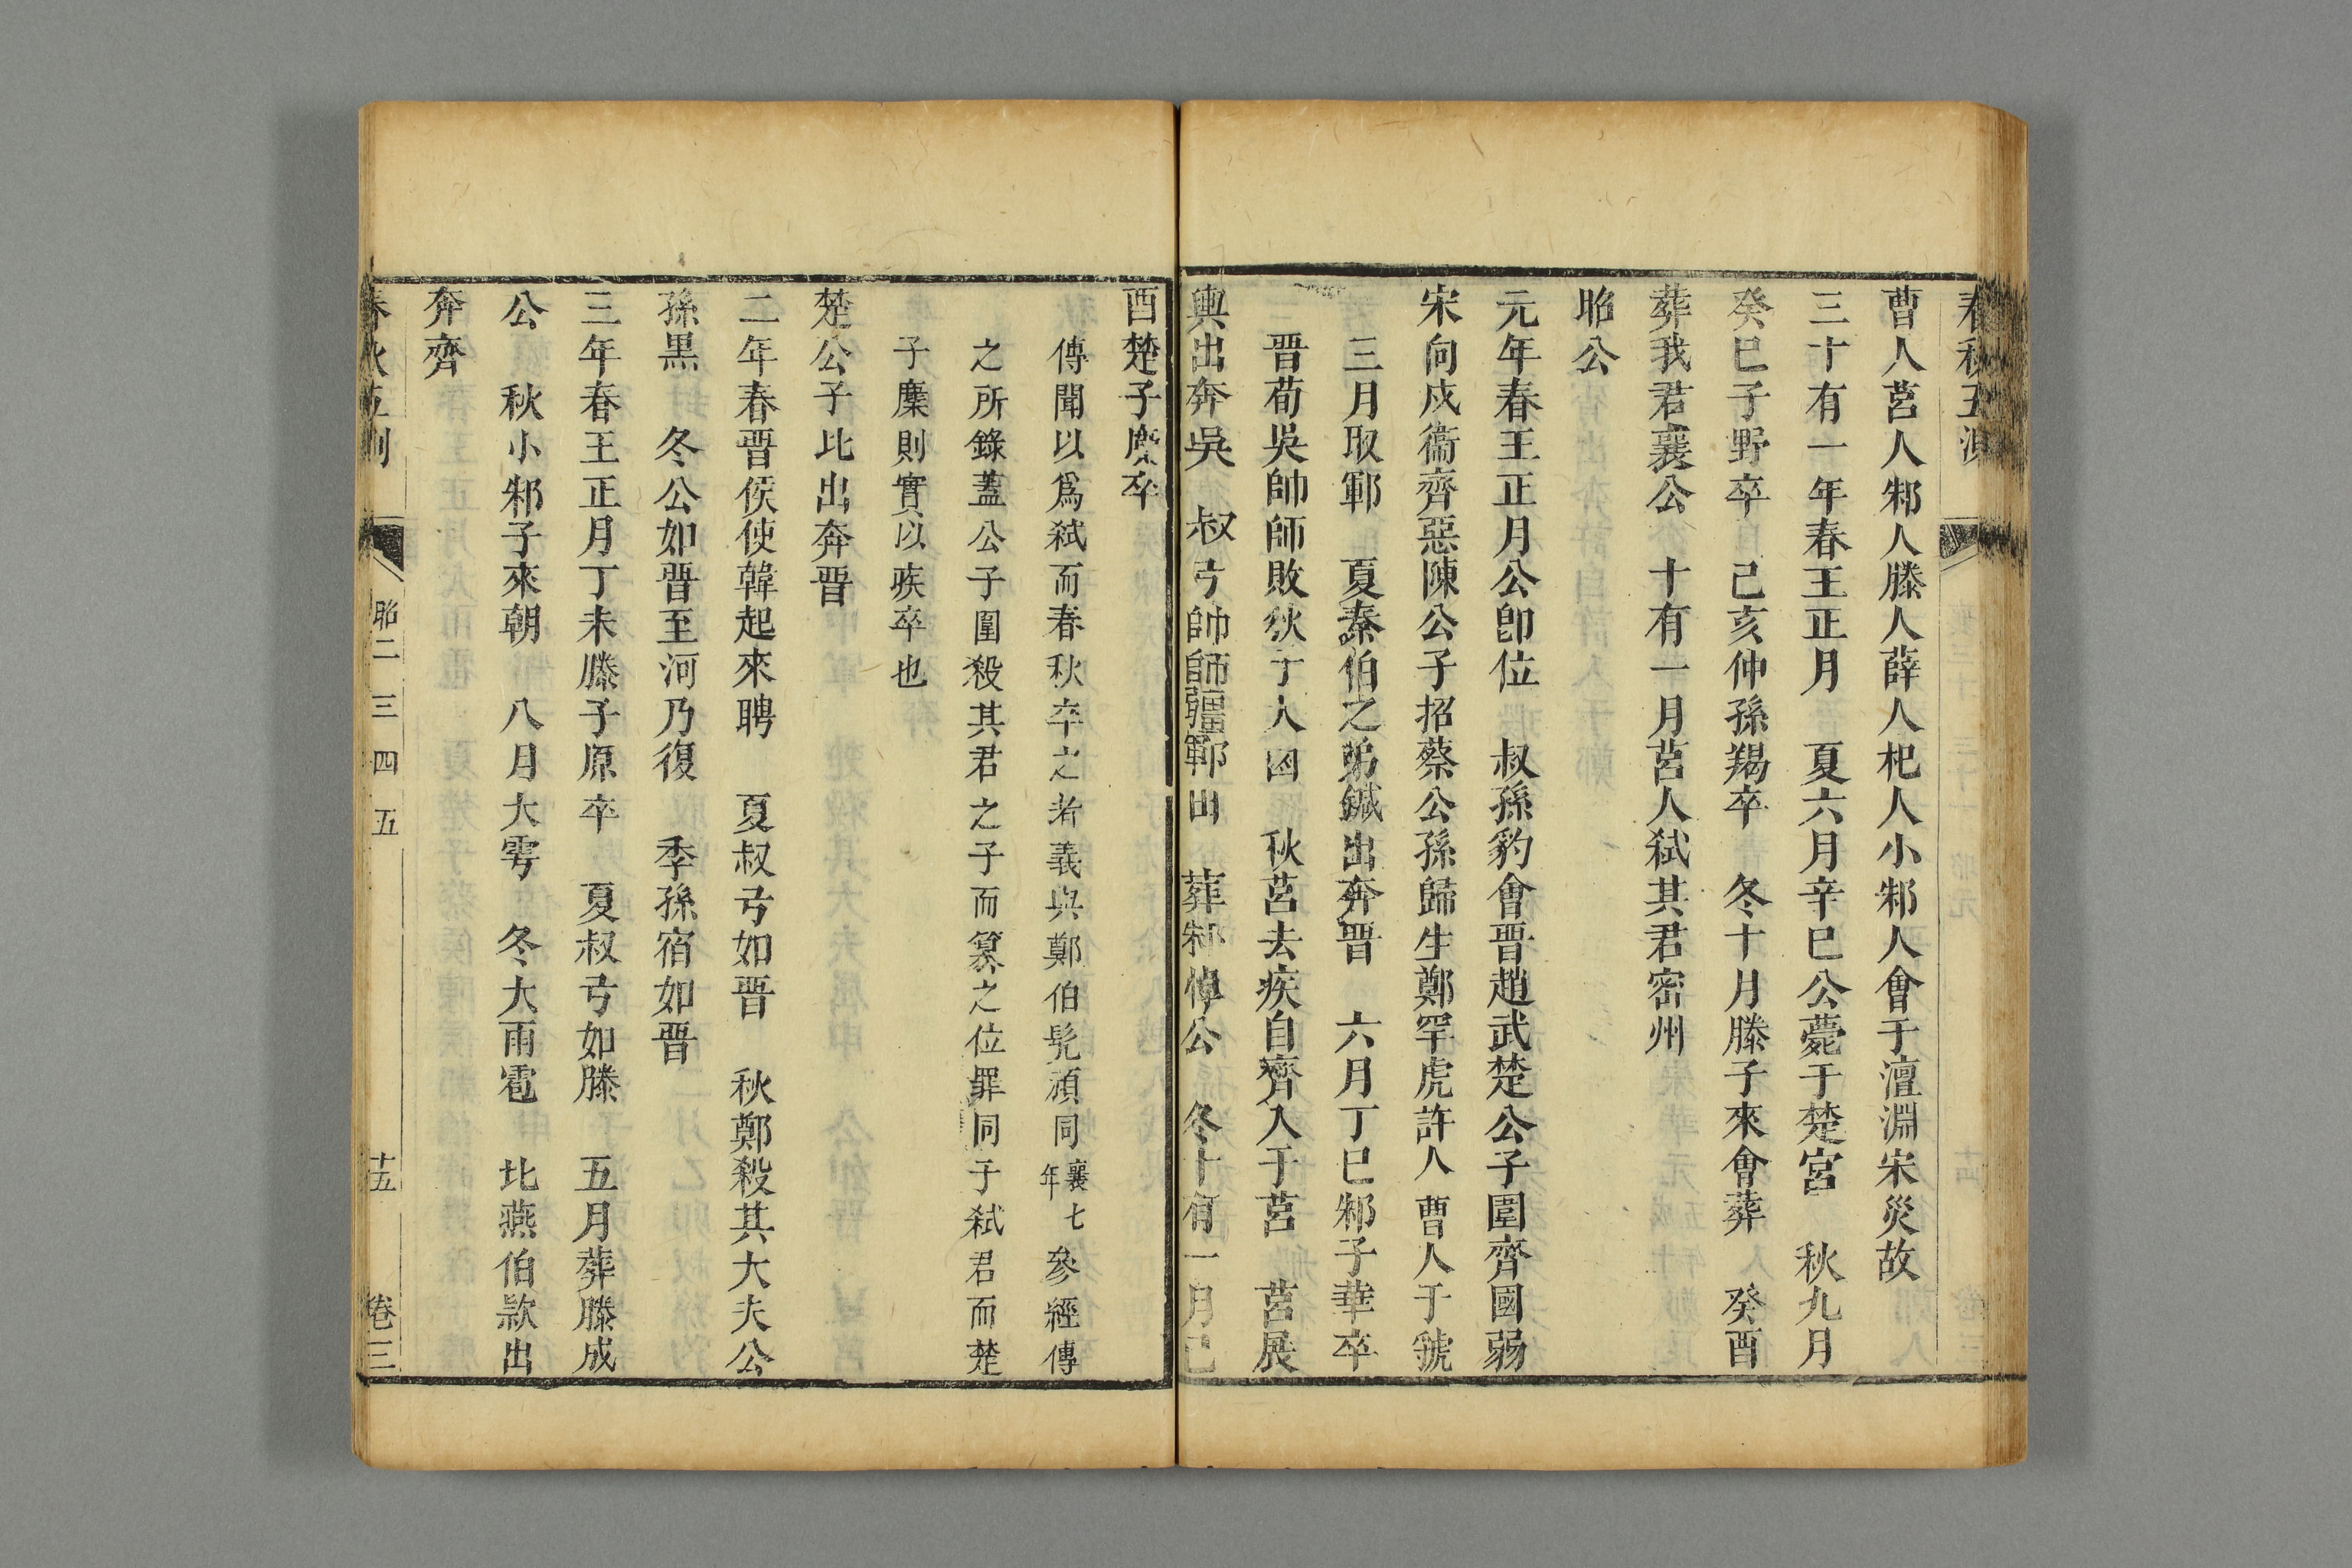 曹人莒人邾人滕人薛人杞人小邾人會于澶淵宋災故
三十有一年春王正月　夏六月辛巳公薨于楚宮　秋九月
癸巳子野卒　己亥仲孫羯卒　冬十月滕子來會葬　癸酉
葬我君襄公　十有一月莒人弒其君密州
昭公
元年春王正月公卽位　叔孫豹會晋趙武楚公子圍齊國弱
宋向戍衞齊惡陳公子招蔡公孫歸生鄭罕虎許人曹人于虢
三月取鄆　夏秦伯之弟鍼出奔晋　六月丁巳邾子華卒
晋荀吳帥師敗狄于大鹵　秋莒去疾自齊入于莒　莒展
輿出奔吳　叔弓帥師疆鄆田　葬邾悼公　冬十有一月己
酉楚子麇卒
傳聞以爲弒而春秋卒之者義與鄭伯髠頑同襄七年參經傳
之所錄蓋公子圍殺其君之子而篡之位罪同于弒君而楚
子麇則實以疾卒也
楚公子比出奔晋
二年春晋侯使韓起來聘　夏叔弓如晋　秋鄭殺其大夫公
孫黑　冬公如晋至河乃復　季孫宿如晋
三年春王正月丁未滕子原卒　夏叔弓如滕　五月葬滕成
公　秋小邾子來朝　八月大雩　冬大雨雹　北燕伯款出
奔齊
昭二 三 四 五　十五　卷三